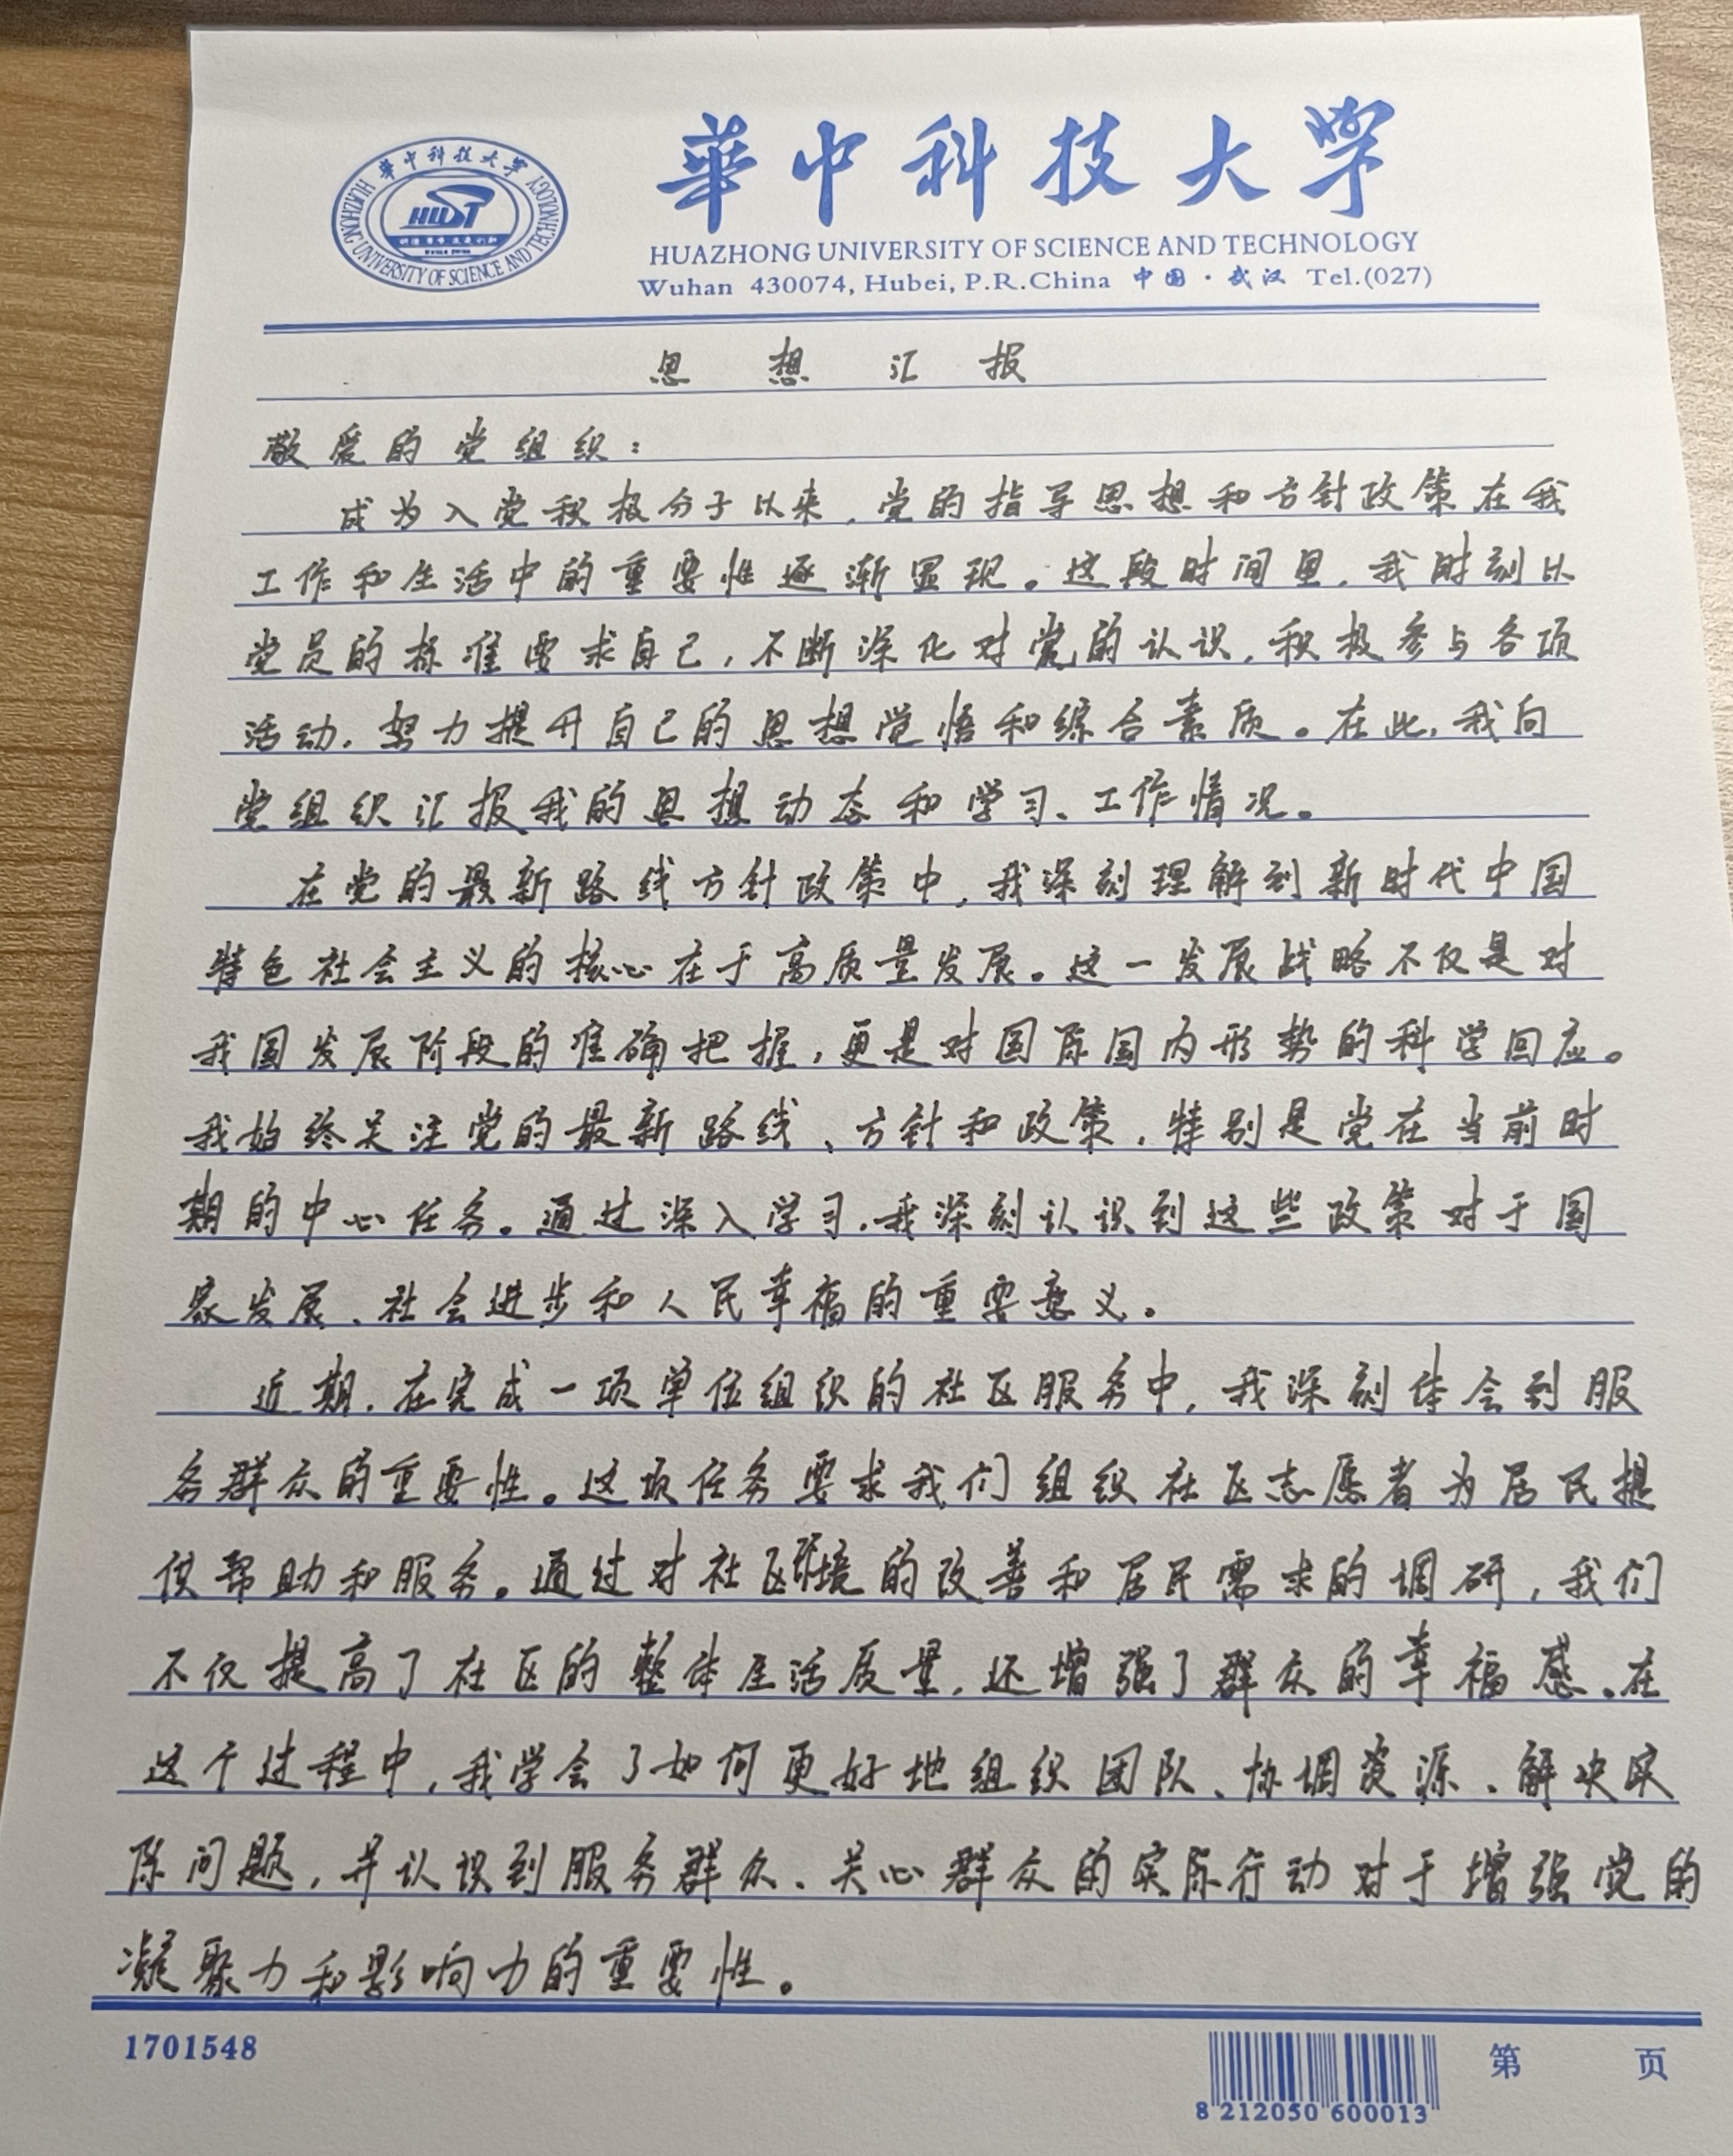 華中科技大學
華中科技大学
HUAZHONG UNIVERSITY OF SCIENCE AND TECHNOLOGY
HUST
HUAZHONG UNIVERSITY OF SCIENCE AND TECHNOLOGY
Wuhan 430074, Hubei, P.R.China 中国·武汉 Tel.(027)
思想汇报
敬爱的党组织：
成为入党积极分子以来，党的指导思想和方针政策在我
工作和生活中的重要性逐渐显现。这段时间里，我时刻以
党员的标准要求自己，不断深化对党的认识，积极参与各项
活动，努力提升自己的思想觉悟和综合素质。在此，我向
党组织汇报我的思想动态和学习、工作情况。
在党的最新路线方针政策中，我深刻理解到新时代中国
特色社会主义的核心在于高质量发展。这一发展战略不仅是对
我国发展阶段的准确把握，更是对国际国内形势的科学回应。
我始终关注党的最新路线、方针和政策，特别是党在当前时
期的中心任务。通过深入学习，我深刻认识到这些政策对于国
家发展、社会进步和人民幸福的重要意义。
近期，在完成一项单位组织的社区服务中，我深刻体会到服
务群众的重要性。这项任务要求我们组织社区志愿者为居民提
供帮助和服务。通过对社区环境的改善和居民需求的调研，我们
不仅提高了社区的整体生活质量，还增强了群众的幸福感。在
这个过程中，我学会了如何更好地组织团队、协调资源、解决实
际问题，并认识到服务群众、关心群众的实际行动对于增强党的
凝聚力和影响力的重要性。
1701548
8 212050 600013
第 页